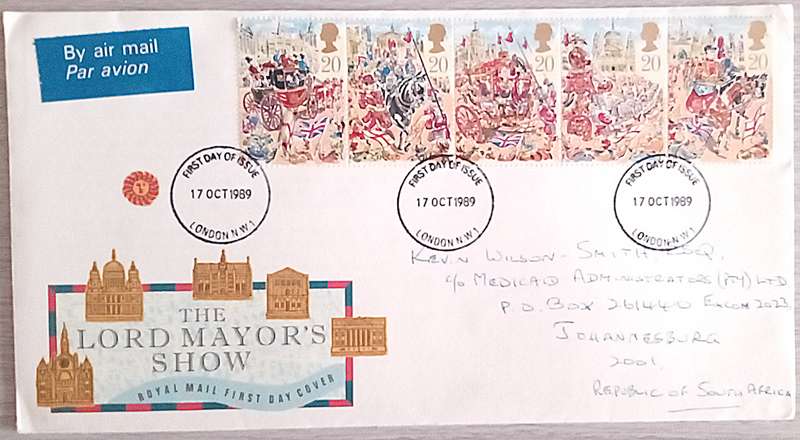 By air mail
Par avion
20
20
20
20
20
FIRST DAY OF ISSUE
17 OCT 1989
LONDON N.W.1
FIRST DAY OF ISSUE
17 OCT 1989
LONDON N.W.1
FIRST DAY OF ISSUE
17 OCT 1989
LONDON N.W.1
KEVIN WILSON-SMITH ESQ,
C/O MEDICAID ADMINISTRATORS (PTY) LTD
P.O. BOX 261440 EXCOM 2023
JOHANNESBURG
2001.
REPUBLIC OF SOUTH AFRICA
THE
LORD MAYOR'S
SHOW
ROYAL MAIL FIRST DAY COVER